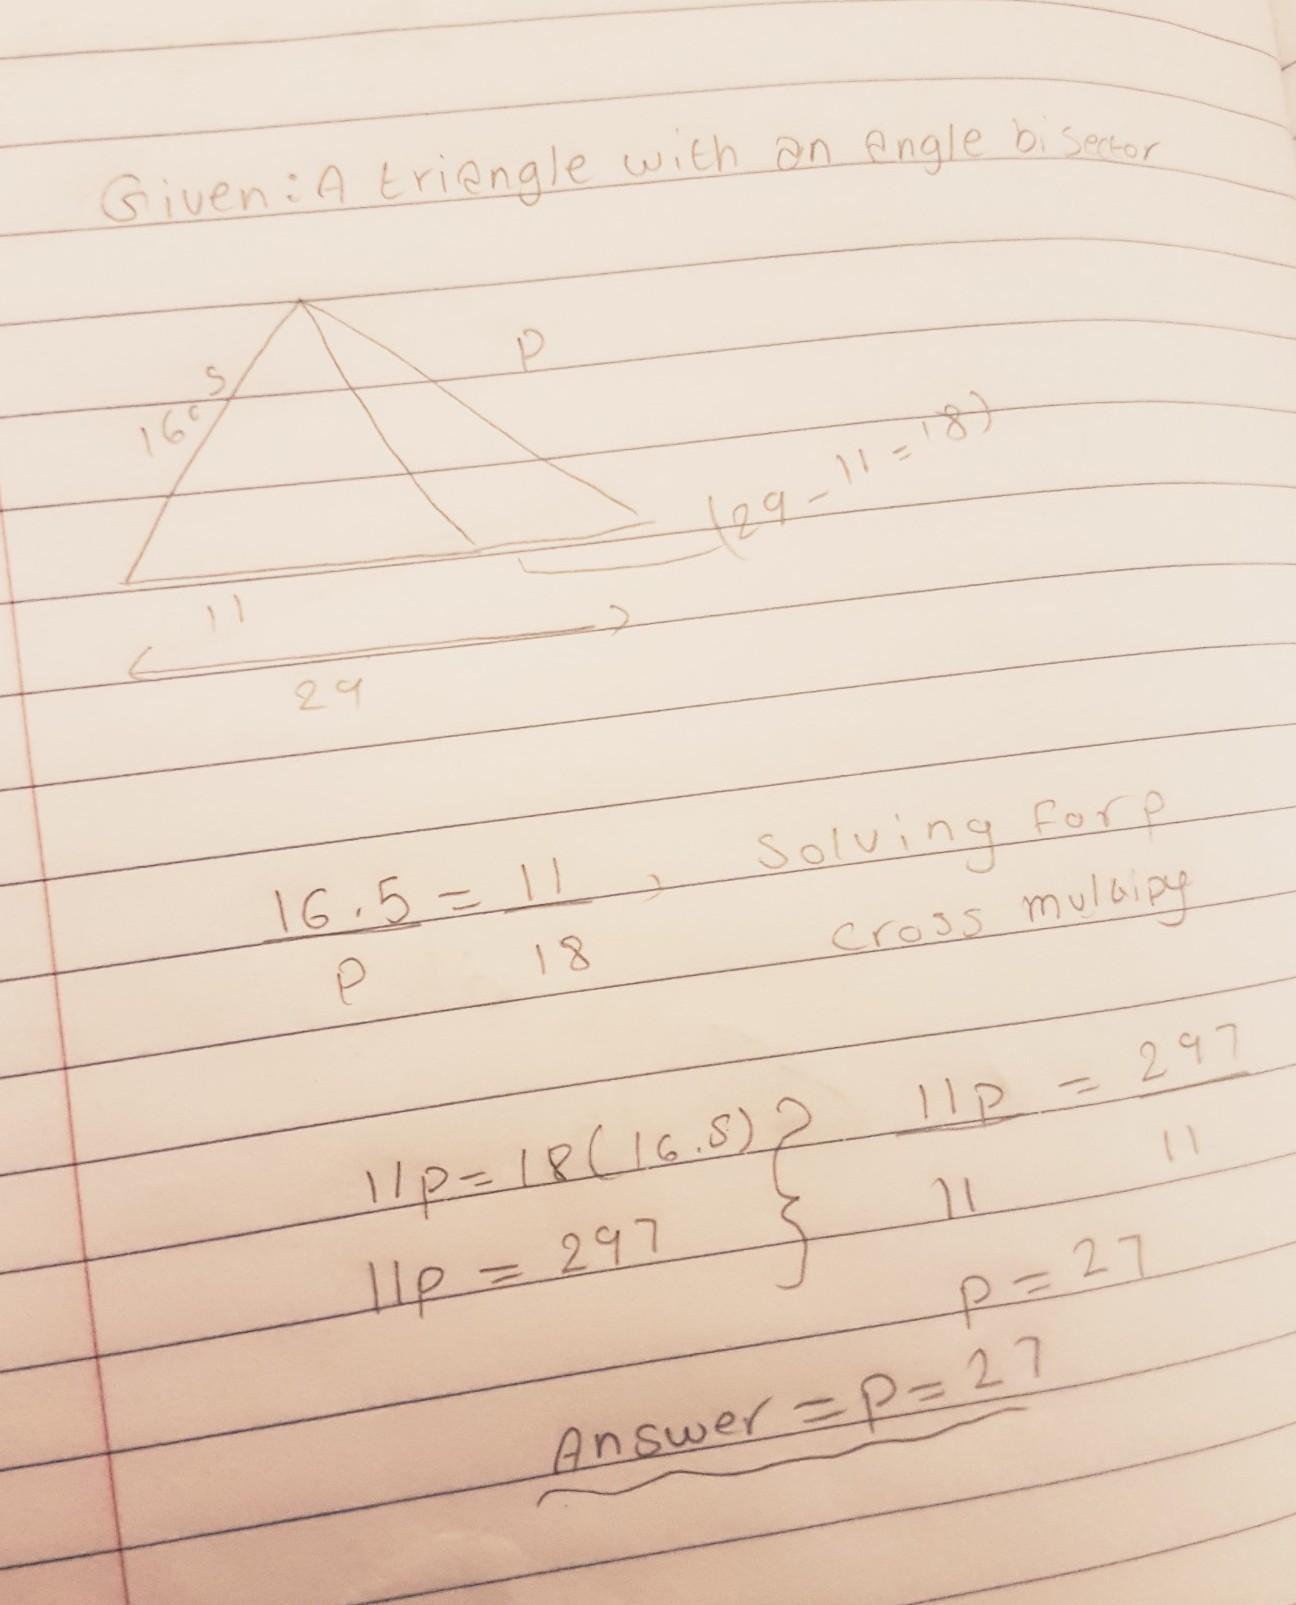 Given: A triangle with an angle bisector
16.5
P
(29-11=18)
11
29
16.5 = 11 , Solving for p
P 18 cross mulaipy
11p = 18(16.5)
11p = 297
11p = 297
11 11
p = 27
Answer = p = 27